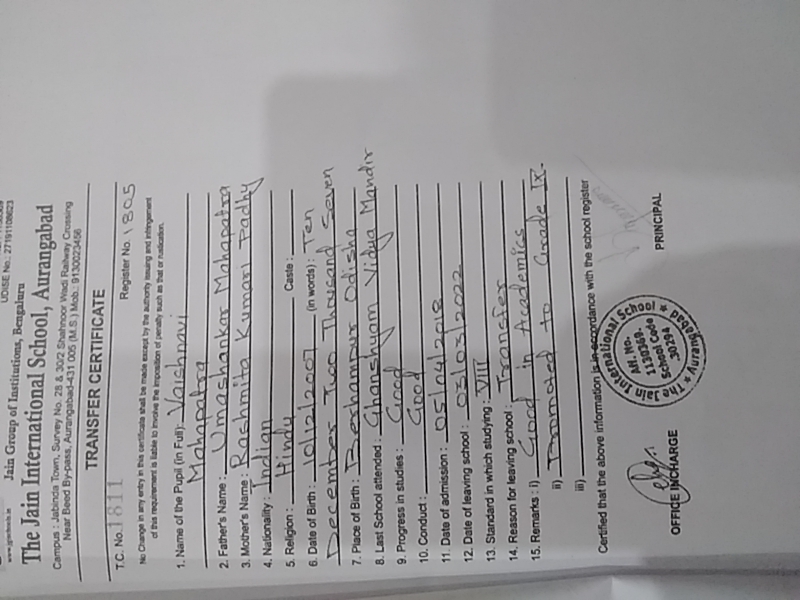 UDISE No.: 27191108623
Jain Group of Institutions, Bengaluru
The Jain International School, Aurangabad
Campus : Jabinda Town, Survey No. 28 & 30/2 Shahnoor Wadi Railway Crossing
Near Beed By-pass, Aurangabad-431 005 (M.S.) Mob.: 9130023456
TRANSFER CERTIFICATE
T.C. No. 1811 Register No. 1805
No Change in any entry in this certificate shall be made except by the authority issuing and infringement
of this requirement is liable to involve the imposition of penalty such as that or rustication.
1. Name of the Pupil (in Full): Vaishnavi
Mahapatra
2. Father's Name : Umashankar Mahapatra
3. Mother's Name : Rashmita Kumari Padhy
4. Nationality : Indian
5. Religion : Hindu Caste :
6. Date of Birth : 10/12/2007 (in words) : Ten
December Two Thousand Seven
7. Place of Birth : Berhampur Odisha
8. Last School attended : Ghanshyam Vidya Mandir
9. Progress in studies : Good
10. Conduct : Good
11. Date of admission : 05/04/2018
12. Date of leaving school : 03/05/2022
13. Standard in which studying : VIII
14. Reason for leaving school : Transfer
15. Remarks : i) Good in Academics
ii) Promoted to Grade IX.
iii)
Certified that the above information is in accordance with the school register
The Jain International School
Aff. No.
1130369.
School Code
30294
Aurangabad
OFFICE INCHARGE PRINCIPAL